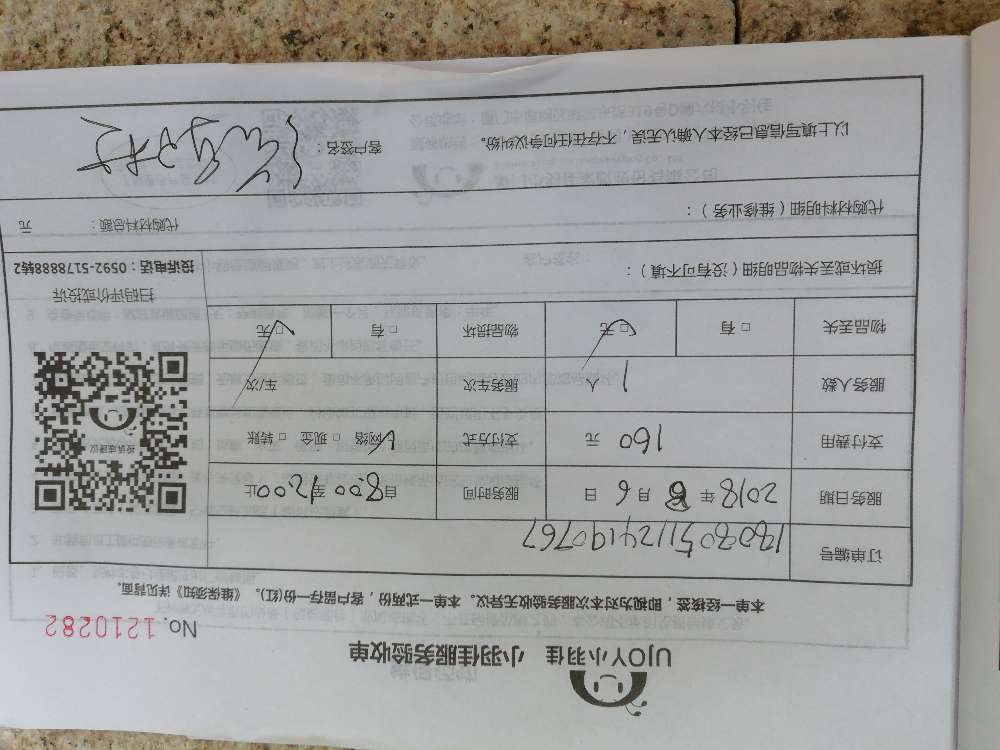 UJOY小羽佳 小羽佳服务验收单
No. 1210282
本单一经核签，即视为对本次服务验收无异议。本单一式两份，客户留存一份(红)。《维保须知》详见背面。
订单编号 1808051124190767
服务日期 2018年8月6日 服务时间 自8:00至12:00止
支付费用 160元 支付方式 网络 □现金 □转账
服务人数 1人 服务车次 车/次
物品丢失 □有 □无 物品损坏 □有 □无
投诉或建议
扫码评价或投诉
投诉电话：0592-5178888转2
损坏或丢失物品明细（没有可不填）：
代购材料明细（维修业务）： 代购材料总额： 元
以上填写信息已经本人确认无误，不存在任何争议纠纷。 客户签名：